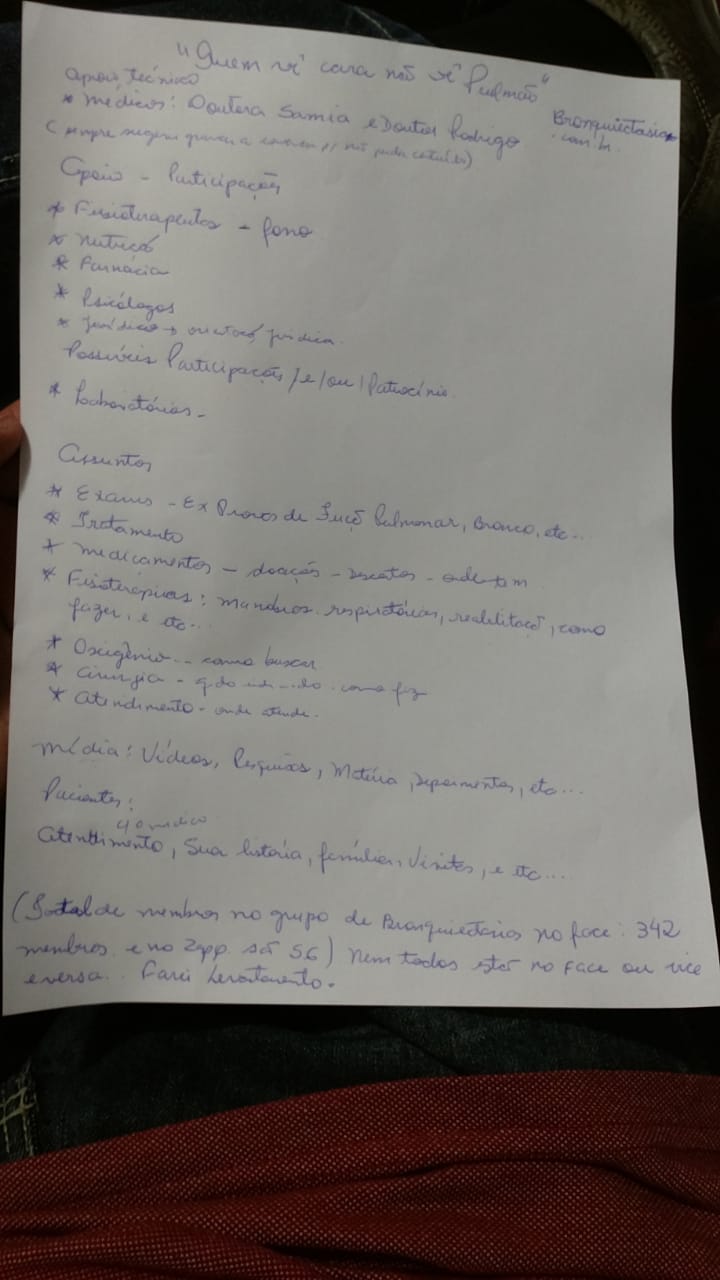 "Quem vê cara não vê Pulmão"
Apoio técnico
* Médicos: Doutora Samia e Doutor Rodrigo
Bronquiectasias
.com.br.
(sempre
Apoio - Participações
* Fisioterapeutas - fono
* Nutrição
* Farmácia
* Psicólogos
* Jurídico → jurídica.
Possíveis Participações / e / ou / Patrocínio
* Laboratórios -
Assuntos
* Exames - Ex Provas de Função Pulmonar, Bronco, etc...
* Tratamento
* Medicamentos - doação - - onde tem
* Fisioterápicas: manobras respiratórias, reabilitação, como
fazer, e etc...
* Oxigênio... como buscar
* Cirurgia - como faz
* Atendimento - onde atende.
Mídia: Vídeos, Pesquisas, Matéria, Depoimentos, etc...
Pacientes:
Atendimento, Sua história, famílias, Visitas, e etc...
(Total de membros no grupo de Bronquiectasias no face: 342
membros. e no Zapp. são 56) Nem todos estão no face ou vice
e versa. Farei Levantamento.